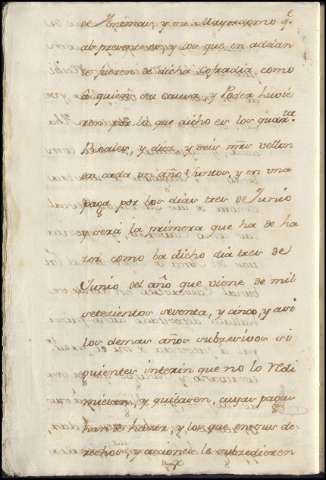 de Animas, y su Mayordomo q.e
al presente es, y los que en adelan
te fueren de dicha Cofradia, como
á quien su causa, y Poder huvie
ren es a saver dichos los quar.ta
Reales, y diez, y seis mrs vellon
en cada un año, juntos, y en una
paga por los dias tres de Junio
y será la primera que ha de ha
zer como ba dicho dia tres de
Junio del año que viene de mil
setecientos setenta, y cinco, y assi
los demas años subzesivos si
guientes interin que no lo Redi
mieren, y quitaren, cuyas pagas
han de hazer, y los que en sus de
rechos, y acciones le subzedieren